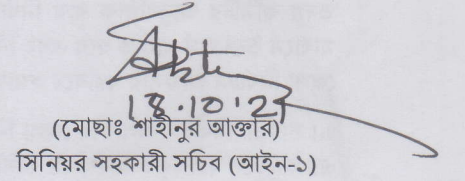 18.10.21
(মোছাঃ শাহীনুর আক্তার)
সিনিয়র সহকারী সচিব (আইন-১)